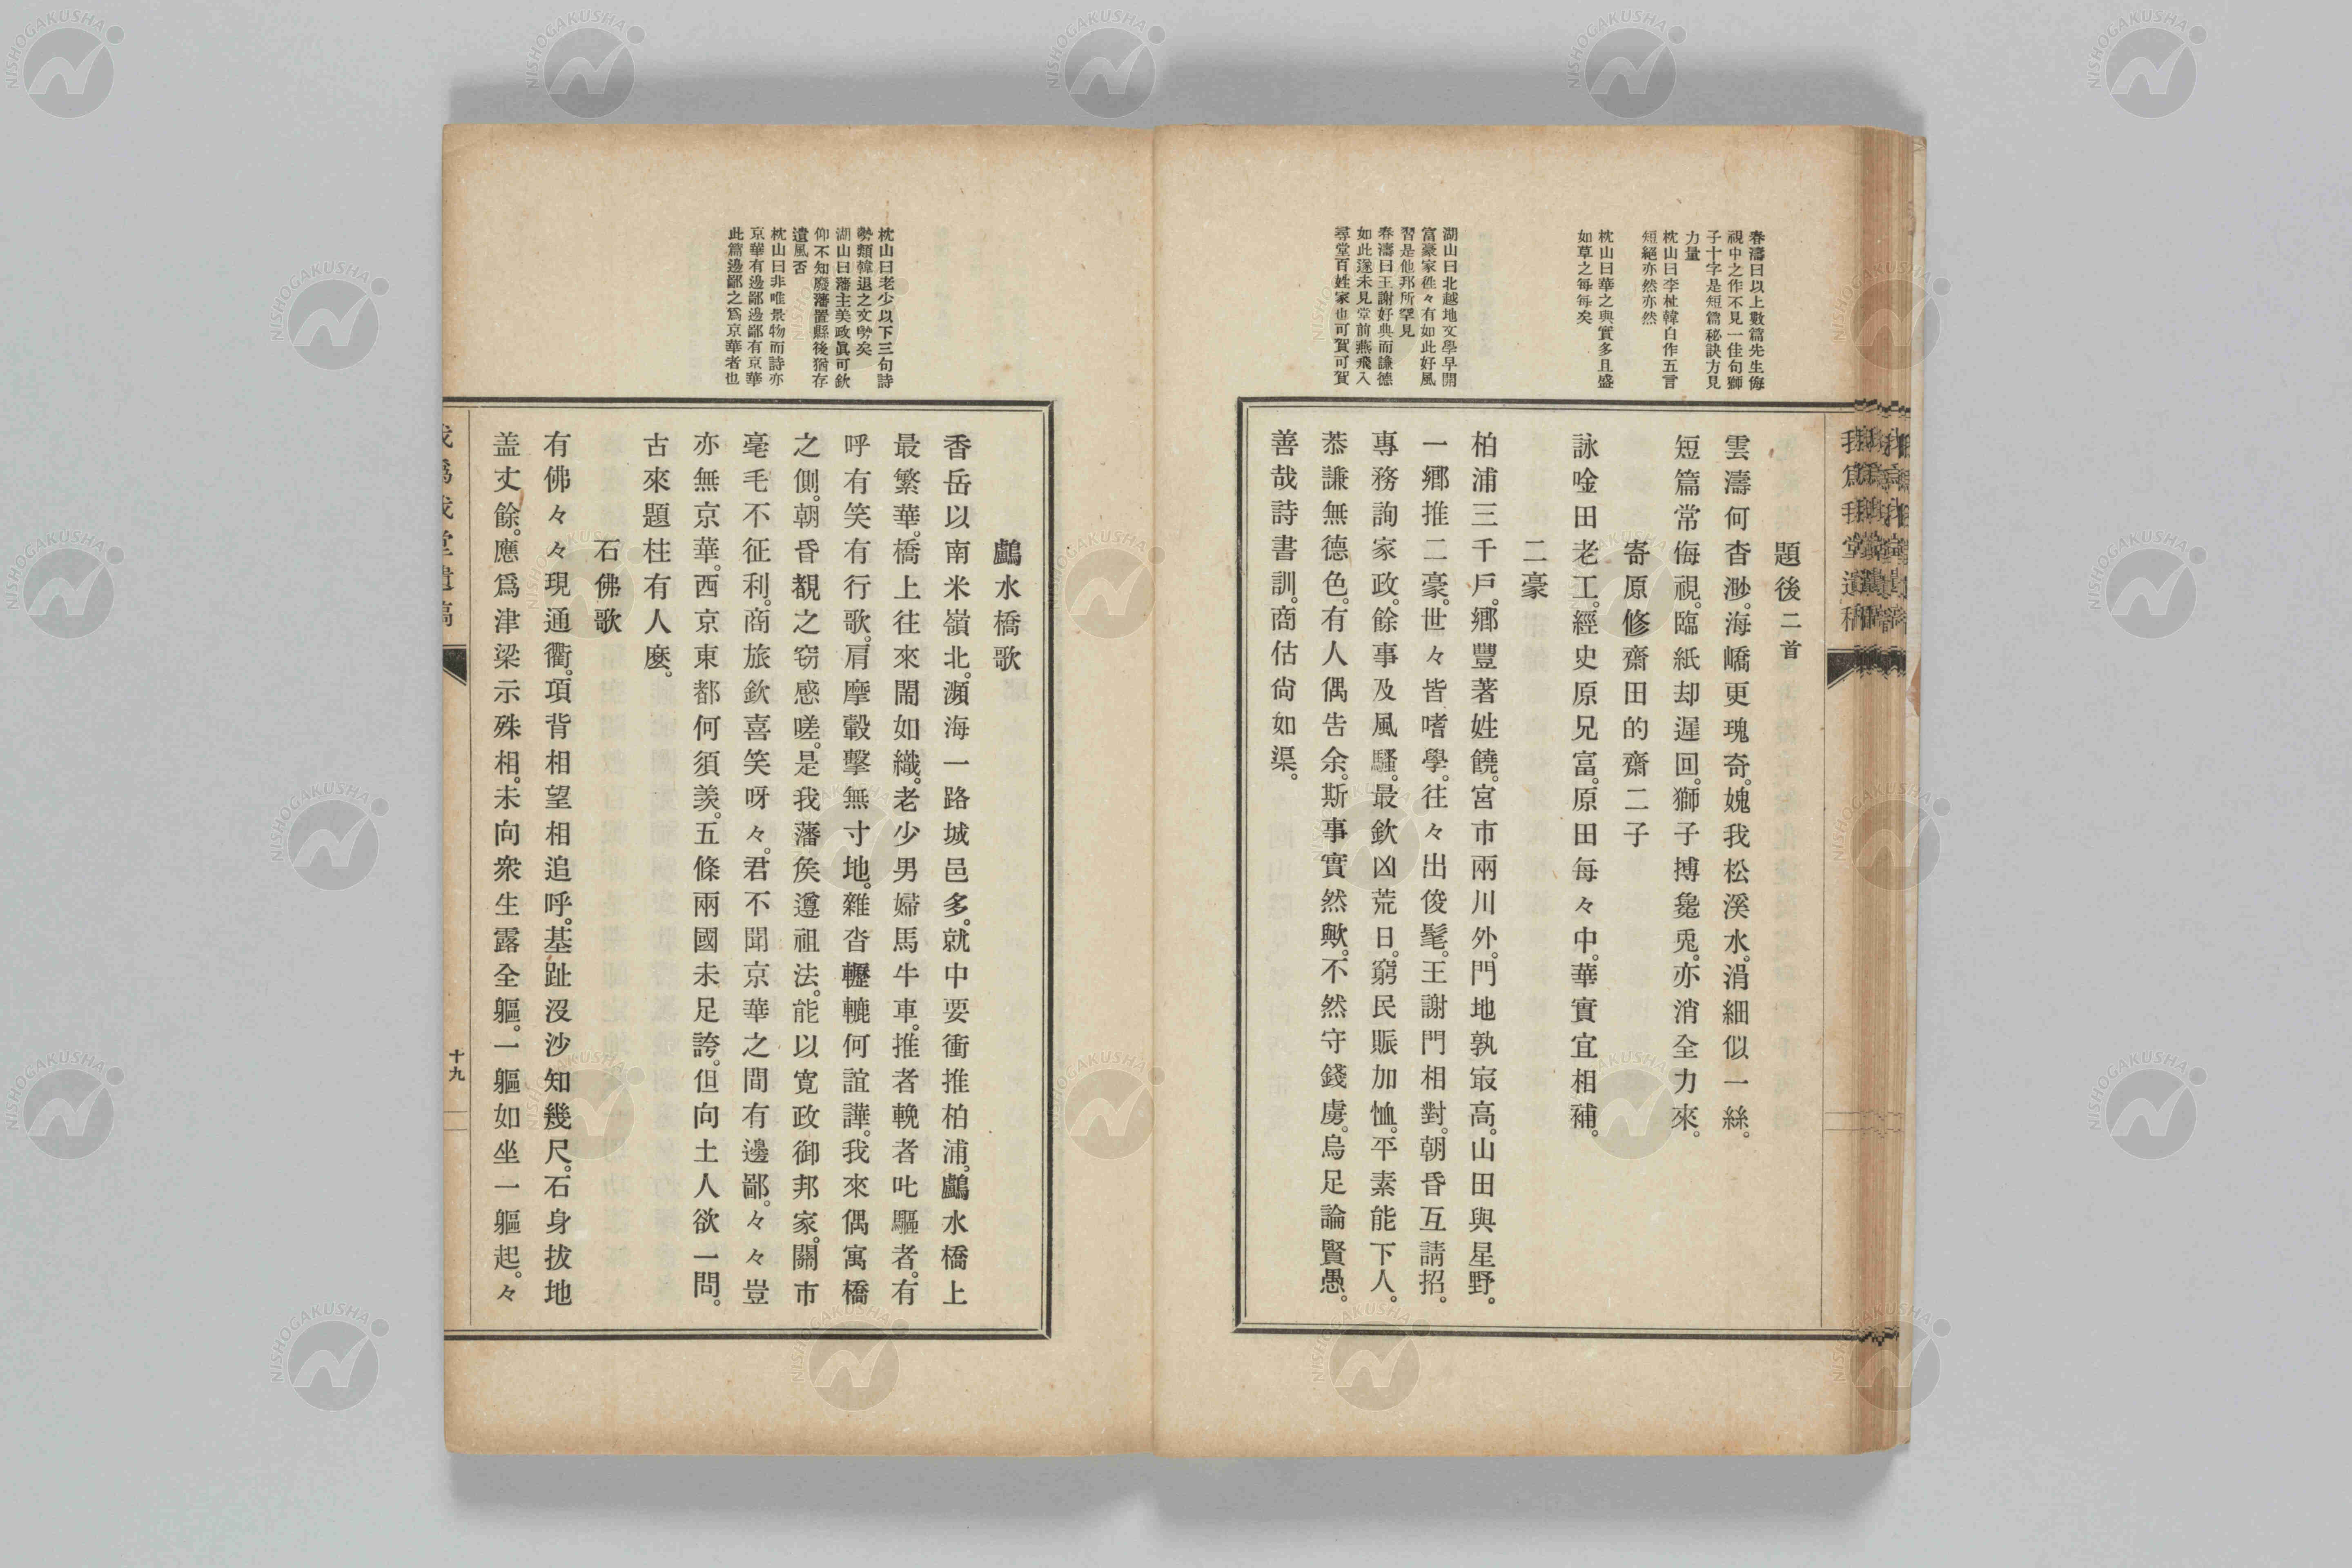 春濤曰以上數篇先生侮
視中之作不見一佳句獅
子十字是短篇秘訣方見
力量
枕山曰李杜韓白作五言
短絕亦然亦然
枕山曰華之與實多且盛
如草之每每矣
湖山曰北越地文學早開
富豪家徃々有如此好風
習是他邦所罕見
春濤曰王謝好典而謙德
如此遂未見堂前燕飛入
尋堂百姓家也可賀可賀
我爲我堂遺稿
題後二首
雲濤何杳渺。海嶠更瑰奇。媿我松溪水。涓細似一絲。
短篇常侮視。臨紙却遲回。獅子搏毚兎。亦消全力來。
寄原修齋田的齋二子
詠唫田老工。經史原兄富。原田每々中。華實宜相補。
二豪
柏浦三千戶。鄉豐著姓饒。宮市兩川外。門地孰㝡高。山田與星野。
一鄉推二豪。世々皆嗜學。往々出俊髦。王謝門相對。朝昏互請招。
專務詢家政。餘事及風騷。最欽凶荒日。窮民賑加恤。平素能下人。
恭謙無德色。有人偶告余。斯事實然歟。不然守錢虜。烏足論賢愚。
善哉詩書訓。商估尙如渠。
枕山曰老少以下三句詩
勢類韓退之文勢矣
湖山曰藩主美政眞可欽
仰不知廢藩置縣後猶存
遺風否
枕山曰非唯景物而詩亦
京華有邊鄙邊鄙有京華
此篇邊鄙之爲京華者也
鸕水橋歌
香岳以南米嶺北。瀕海一路城邑多。就中要衝推柏浦。鸕水橋上
最繁華。橋上往來鬧如織。老少男婦馬牛車。推者輓者叱驅者。有
呼有笑有行歌。肩摩轂擊無寸地。雜沓轣轆何諠譁。我來偶寓橋
之側。朝昏覩之窃感嗟。是我藩矦遵祖法。能以寬政御邦家。關市
毫毛不征利。商旅欽喜笑呀々。君不聞京華之間有邊鄙。々々豈
亦無京華。西京東都何須羨。五條兩國未足誇。但向土人欲一問。
古來題柱有人麽。
石佛歌
有佛々々現通衢。項背相望相追呼。基趾沒沙知幾尺。石身拔地
盖丈餘。應爲津梁示殊相。未向衆生露全軀。一軀如坐一軀起。々
我爲我堂遺稿
十九